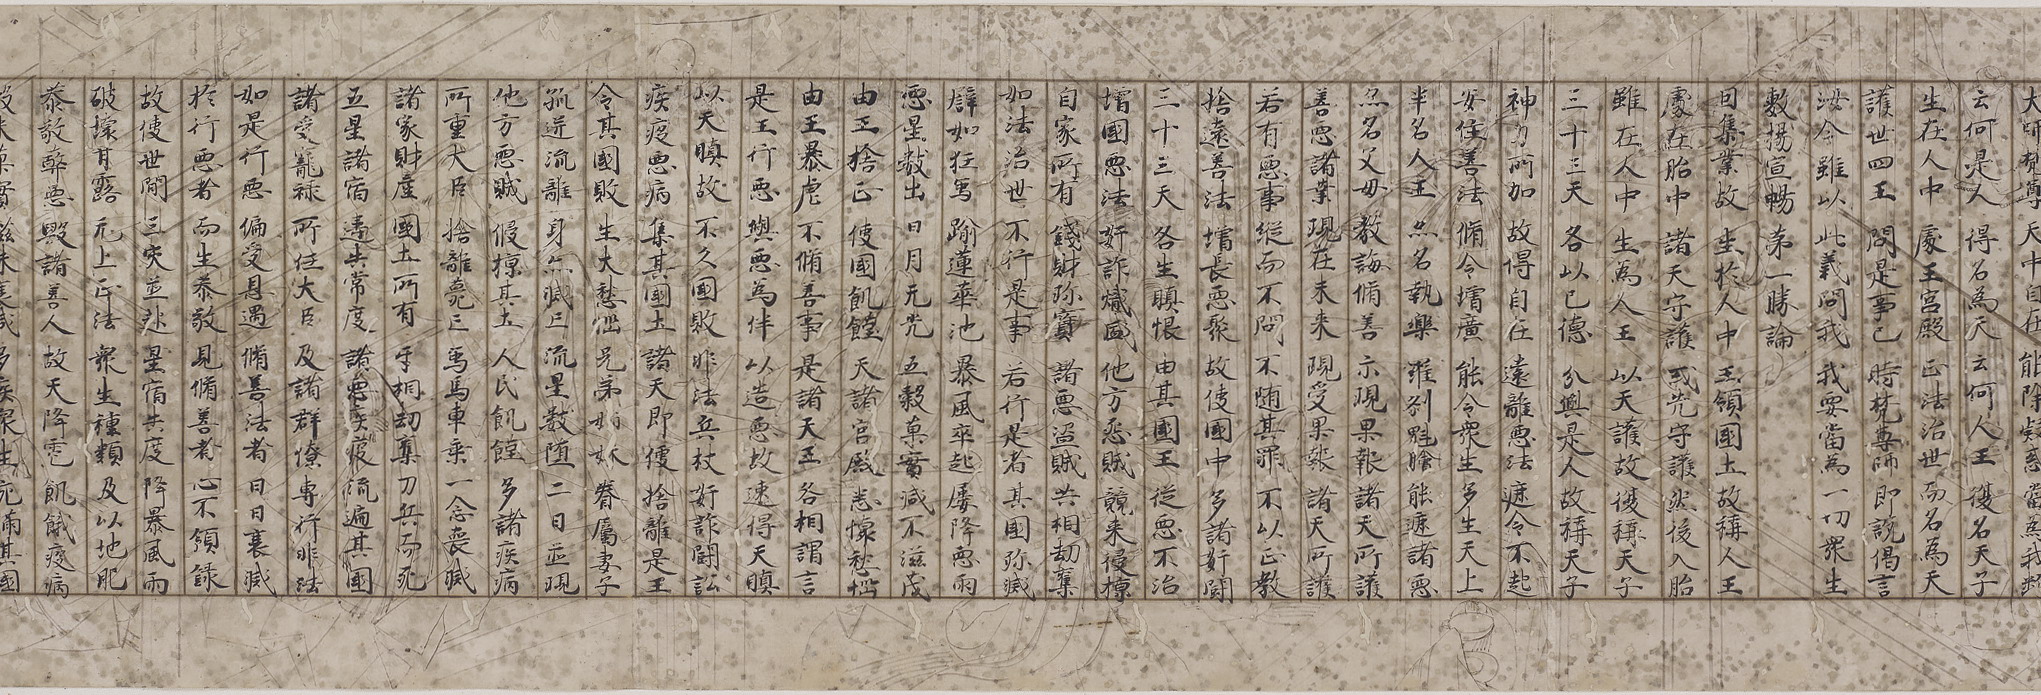 大師梵尊 天中自在 能除疑惑 當為我斷
云何是人 得名為天 云何人王 復名天子
生在人中 處王宮殿 正法治世 而名為天
護世四王 問是事已 時梵尊師 即說偈言
汝今雖以 此義問我 我要當為 一切眾生
敷揚宣暢 第一勝論
因集業故 生於人中 王領國土 故稱人王
處在胎中 諸天守護 或先守護 然後入胎
雖在人中 生為人王 以天護故 復稱天子
三十三天 各以己德 分與是人 故稱天子
神力所加 故得自在 遠離惡法 遮令不起
安住善法 脩令增廣 能令眾生 多生天上
半名人王 亦名執樂 羅剎魁膾 能遮諸惡
亦名父母 教誨脩善 示現果報 諸天所護
善惡諸業 現在未來 現受果報 諸天所護
若有惡事 縱而不問 不隨其罪 不以正教
捨遠善法 增長惡聚 故使國中 多諸姧鬪
三十三天 各生瞋恨 由其國王 從惡不治
壞國惡法 姧詐熾盛 他方怨賊 競來侵掠
自家所有 錢財珍寶 諸惡盜賊 共相劫奪
如法治世 不行是事 若行是者 其國殄滅
譬如狂象 蹹蓮華池 暴風卒起 屢降惡雨
惡星數出 日月无光 五穀菓實 咸不滋茂
由王捨正 使國飢饉 天諸宮殿 悉懷愁惱
由王暴虐 不脩善事 是諸天王 各相謂言
是王行惡 與惡為伴 以造惡故 速得天瞋
以天瞋故 不久國敗 非法兵杖 姧詐鬪訟
疾疫惡病 集其國土 諸天即便 捨離是王
令其國敗 生大愁惱 兄弟姊妹 眷屬妻子
孤迸流離 身亦滅亡 流星數墮 二日並現
他方惡賊 侵掠其土 人民飢饉 多諸疾病
所重大臣 捨離薨亡 象馬車乘 一念喪滅
諸家財產 國土所有 互相劫奪 刀兵而死
五星諸宿 違失常度 諸惡疾疫 流遍其國
諸受寵祿 所任大臣 及諸群僚 專行非法
如是行惡 偏受恩遇 脩善法者 日日衰滅
於行惡者 而生恭敬 見脩善者 心不顧錄
故使世間 三異並起 星宿失度 降暴風雨
破壞甘露 无上正法 眾生種類 及以地肥
恭敬弊惡 毀諸善人 故天降雹 飢餓疫病
穀米菓實 滋味衰減 多疾眾生 充滿其國